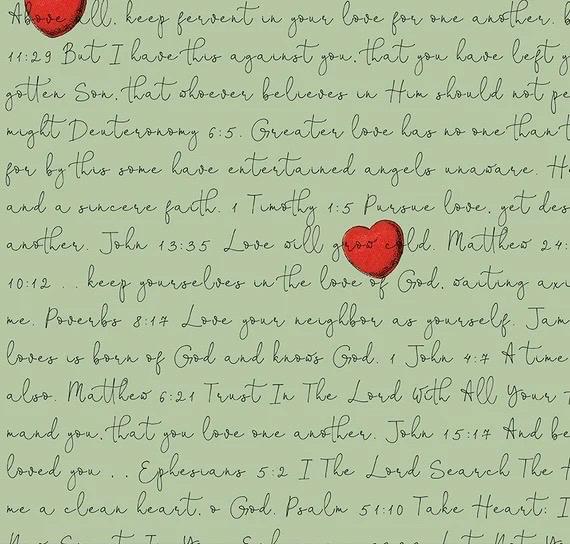 Above all, keep fervent in your love for one another. b
11:29 But I have this against you, that you have left y
gotten Son, that whoever believes in Him should not pe
might Deuteronomy 6:5. Greater love has no one than t
for by this some have entertained angels unaware. He
and a sincere faith. 1 Timothy 1:5 Pursue love, yet des
another. John 13:35 Love will grow cold. Matthew 24:
10:12 . . keep yourselves in the love of God, waiting anxi
me. Proverbs 8:17 Love your neighbor as yourself. Jam
loves is born of God and knows God. 1 John 4:7 A time
also. Matthew 6:21 Trust In The Lord With All Your
mand you, that you love one another. John 15:17 And be
loved you . . Ephesians 5:2 I The Lord Search The
me a clean heart, o God. Psalm 51:10 Take Heart: I